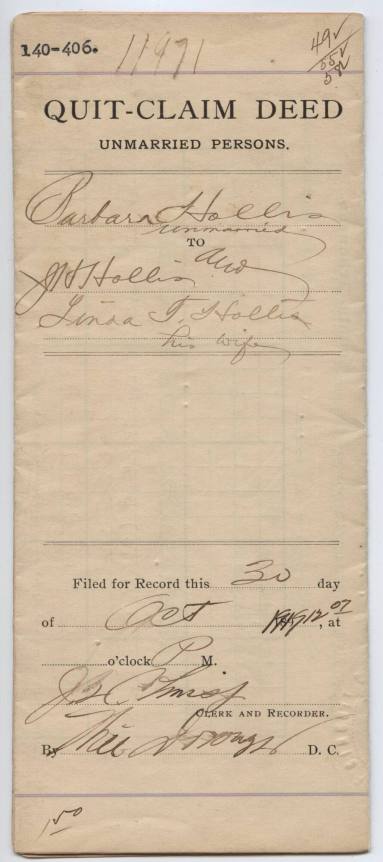 140-406.
11971
49
55
58
QUIT-CLAIM DEED
UNMARRIED PERSONS.
Barbara Hollis
unmarried
TO
J H Hollis and
Linda T. Hollis
his wife
Filed for Record this 30 day
of Oct , at
o'clock P M.
CLERK AND RECORDER.
By D. C.
1.50